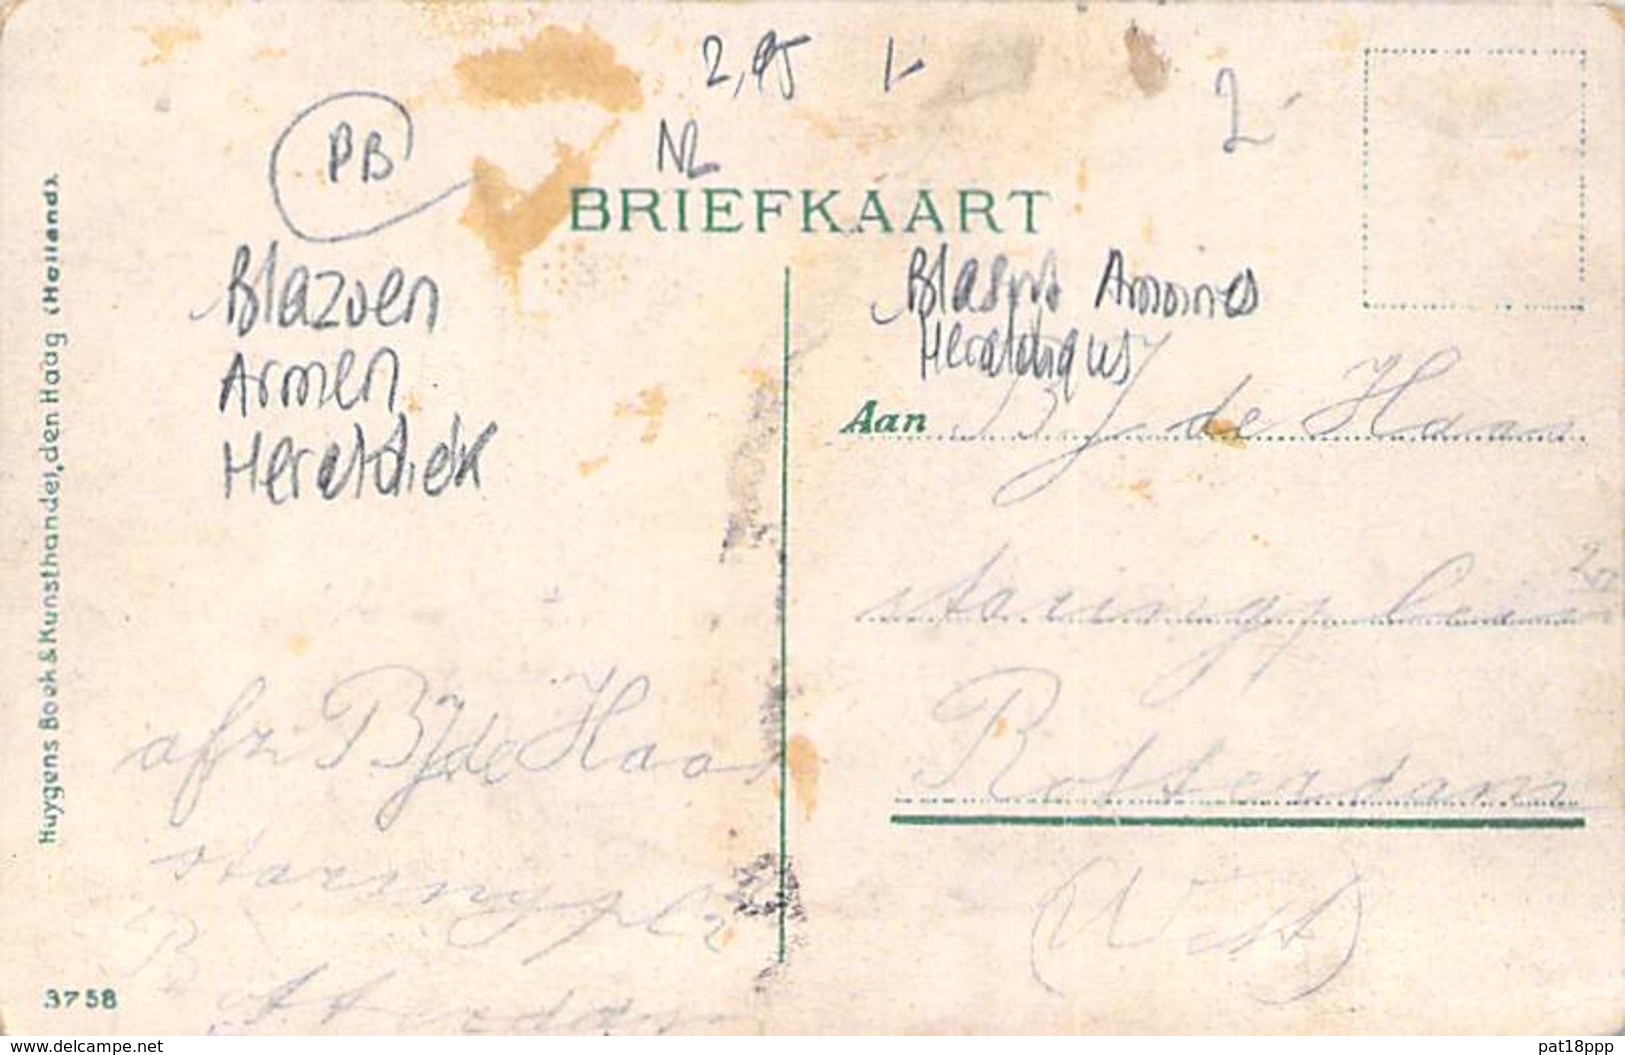 2,95 1-
2-
PB
NL
BRIEFKAART
Blazoen
Armen
Heraldiek
Blason Armoiries
Heraldiques
Aan B J de Haas
Staringplein
Rotterdam
(West)
afz BJ de Haas
Staringpl 2
Rotterdam
Huygens Boek & Kunsthandel, den Haag (Holland).
3758
www.delcampe.net
pat18ppp